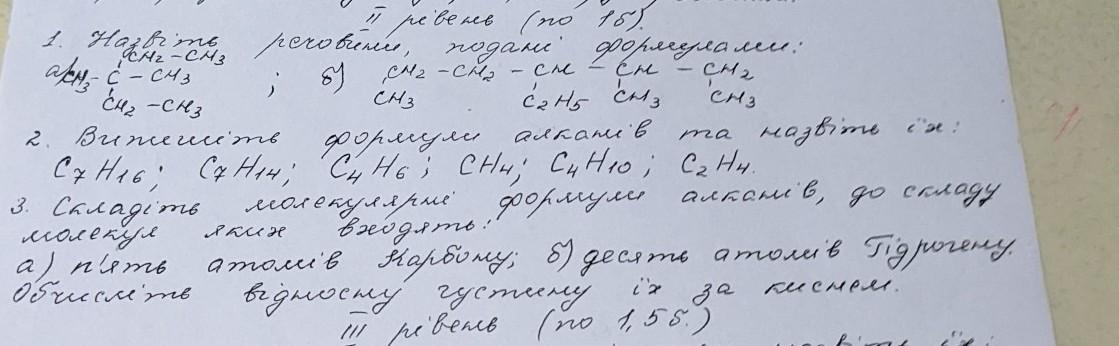 II рівень (по 1б).
1. Назвіть речовини, подані формулами:
CH2-CH3
а) CH3-C-CH3 ; б) CH2-CH2-CH-CH-CH2
CH2-CH3 CH3 C2H5 CH3 CH3
2. Випишіть формули алканів та назвіть їх:
C7H16; C7H14; C4H6; CH4; C4H10; C2H4.
3. Складіть молекулярні формули алканів, до складу
молекул яких входять:
а) п'ять атомів Карбону; б) десять атомів Гідрогену.
Обчисліть відносну густину їх за киснем.
III рівень (по 1,5б.)
їх: